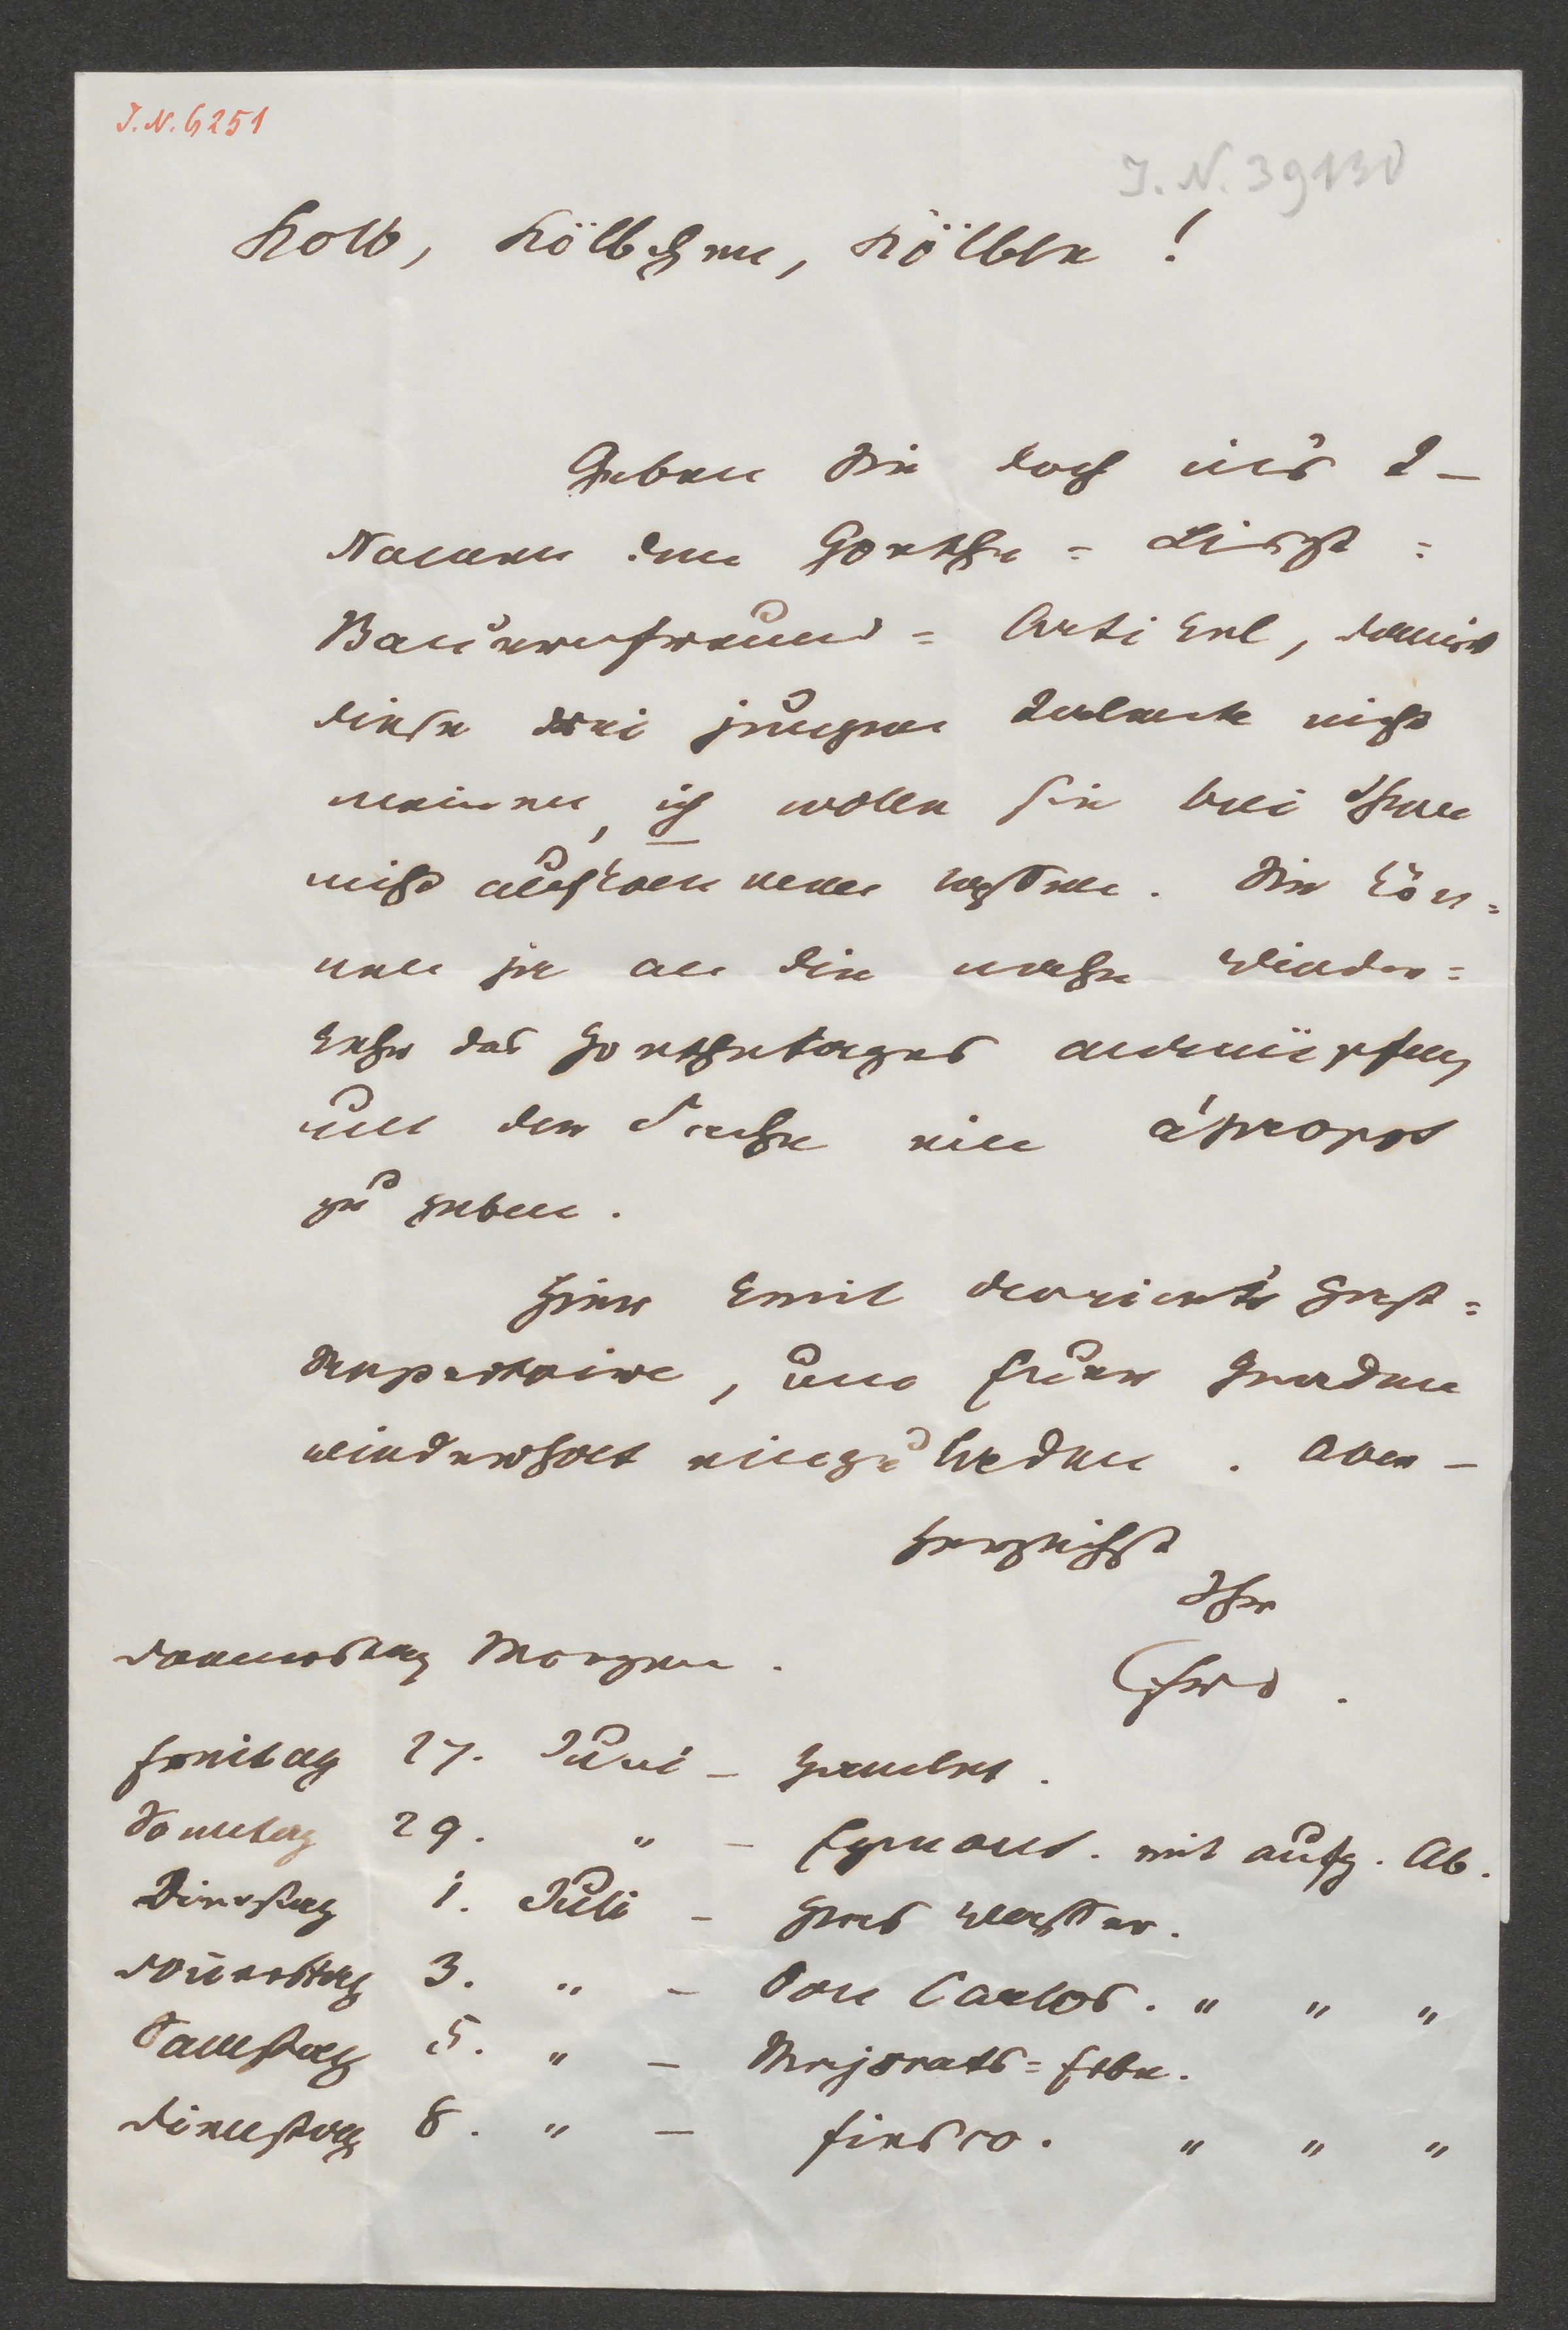 J.N. 6251
J.N. 39130
Kolb, Kölbchen, Kölble!
Geben Sie doch in's
Namen den Goethe = Liszt =
Bauernfreund = Artikel, damit
diese drei jungen Talente nicht
meinen, ich wolle sie bei Ihnen
nicht aufkommen lassen. Sie kön=
nen ja an die nahe Wieder=
kehr des Goethetages anknüpfen,
um der Sache ein àpropos
zu geben.
Hier Emil Devrient's Gast=
Repertoire, um Euer Gnaden
wiederholt einzuladen. Aber –
Herzlichst
Ihr
Donnerstag Morgen.
Freitag 27. Juni – Hamlet.
Sonntag 29. " – Egmont. mit aufg. Ab.
Dienstag 1. Juli – Glas Wasser.
Donnerstag 3. " – Don Carlos. " " "
Samstag 5. " – Majorats=Erbe.
Dienstag 8. " – Fiesco. " " "